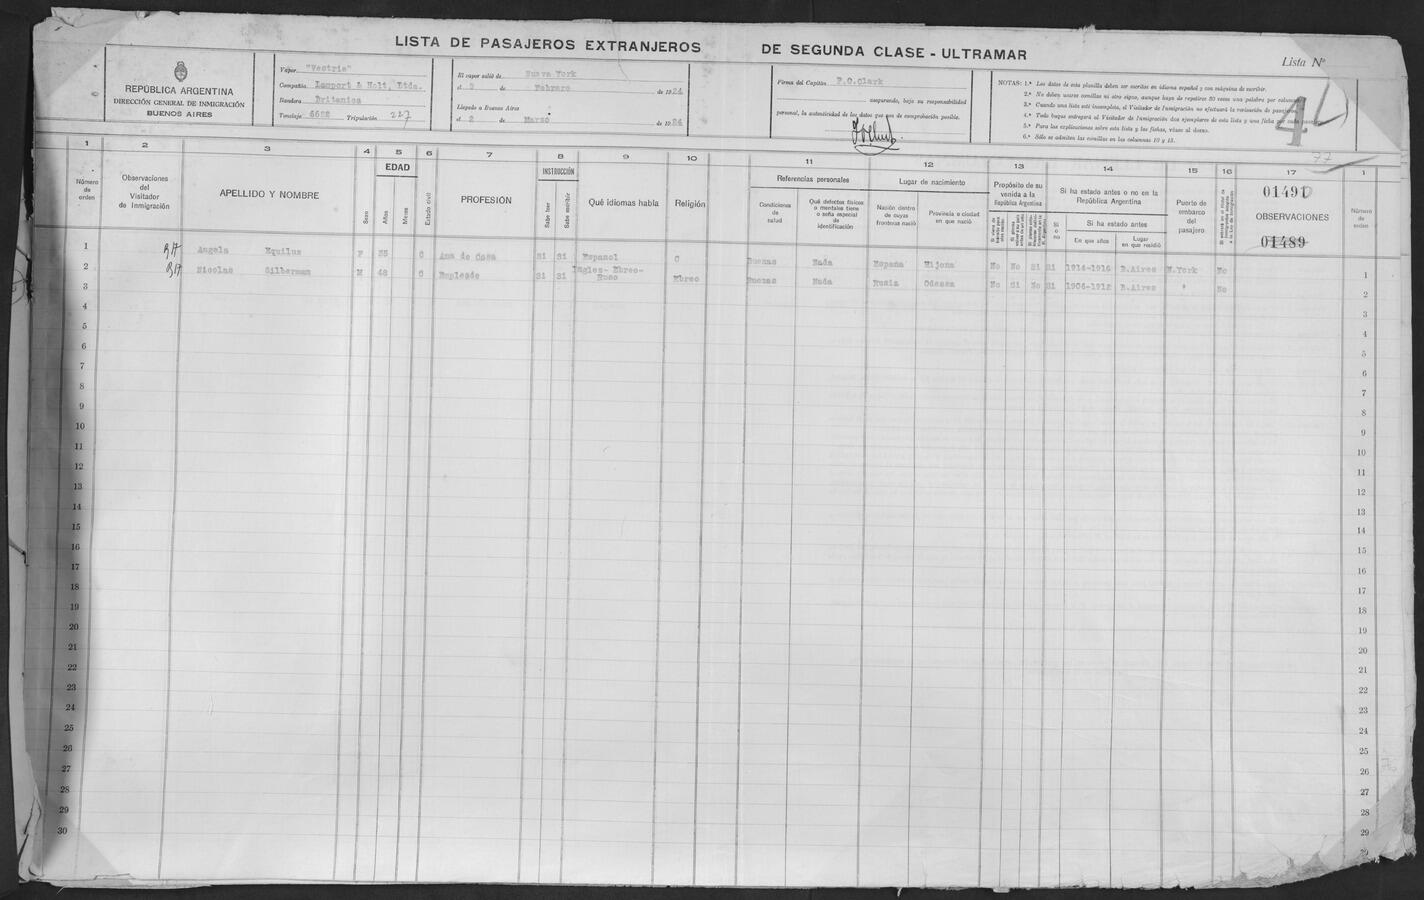 LISTA DE PASAJEROS EXTRANJEROS DE SEGUNDA CLASE - ULTRAMAR
Lista Nº
REPÚBLICA ARGENTINA
DIRECCIÓN GENERAL DE INMIGRACIÓN
BUENOS AIRES
Vapor "Vestris"
Compañía Lamport & Holt, Ltda.
Bandera Britanica
Tonelaje 6622 Tripulación 227
El vapor salió de Nueva York
el 9 Febrero de 1924
Llegado a Buenos Aires
el 2 Marzo de 1924
Firma del Capitán F.C.Clark
asegurando, bajo su responsabilidad
personal, la autenticidad de los datos que son de comprobación posible.
NOTAS: 1.ª Los datos de esta planilla deben ser escritos en idioma español y con máquina de escribir.
2.ª No deben usarse comillas ni otro signo, aunque haya de repetirse 30 veces una palabra por columna.
3.ª Cuando una lista esté incompleta, el Visitador de Inmigración no efectuará la revisación de pasajeros.
4.ª Todo buque entregará al Visitador de Inmigración dos ejemplares de esta lista y una ficha por cada pasajero.
5.ª Para las explicaciones sobre esta lista y las fichas, véase al dorso.
6.ª Sólo se admiten las comillas en las columnas 10 y 15.
4
77
1 2 3 4 5 6 7 8 9 10 11 12 13 14 15 16 17 1
Número de orden
Observaciones del Visitador de Inmigración
APELLIDO Y NOMBRE
Sexo
EDAD
Años
Meses
Estado civil
PROFESIÓN
INSTRUCCIÓN
Sabe leer
Sabe escribir
Qué idiomas habla
Religión
Referencias personales
Condiciones de salud
Qué defectos físicos o mentales tiene o seña especial de identificación
Lugar de nacimiento
Nación dentro de cuyas fronteras nació
Provincia o ciudad en que nació
Propósito de su venida a la República Argentina
Si ha estado antes o no en la República Argentina
Si o no
Si ha estado antes
En que años
Lugar en que residió
Puerto de embarco del pasajero
01491
OBSERVACIONES
01489
Número de orden
1 Angela Equilus F 35 C Ama de Casa Si Si Espanol C Buenas Nada España Hijona No No Si Si 1914-1916 B.Aires N.York No 1
2 Nicolas Silberman M 48 C Empleado Si Si Ingles- Ebreo- Ruso Ebreo Buenas Nada Rusia Odessa No Si No Si 1906-1912 B.Aires " No 2
3 3
4 4
5 5
6 6
7 7
8 8
9 9
10 10
11 11
12 12
13 13
14 14
15 15
16 16
17 17
18 18
19 19
20 20
21 21
22 22
23 23
24 24
25 25
26 26
27 27
28 28
29 29
30